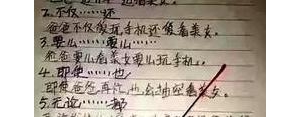 还看美女。
2.不仅……还
爸爸不仅仅玩手机还偷看美女。
3.要么……要么……
爸爸要么看美女要么玩手机。
4.即使……也
即使爸爸再忙,也会抽空看美女。
5.无论……都